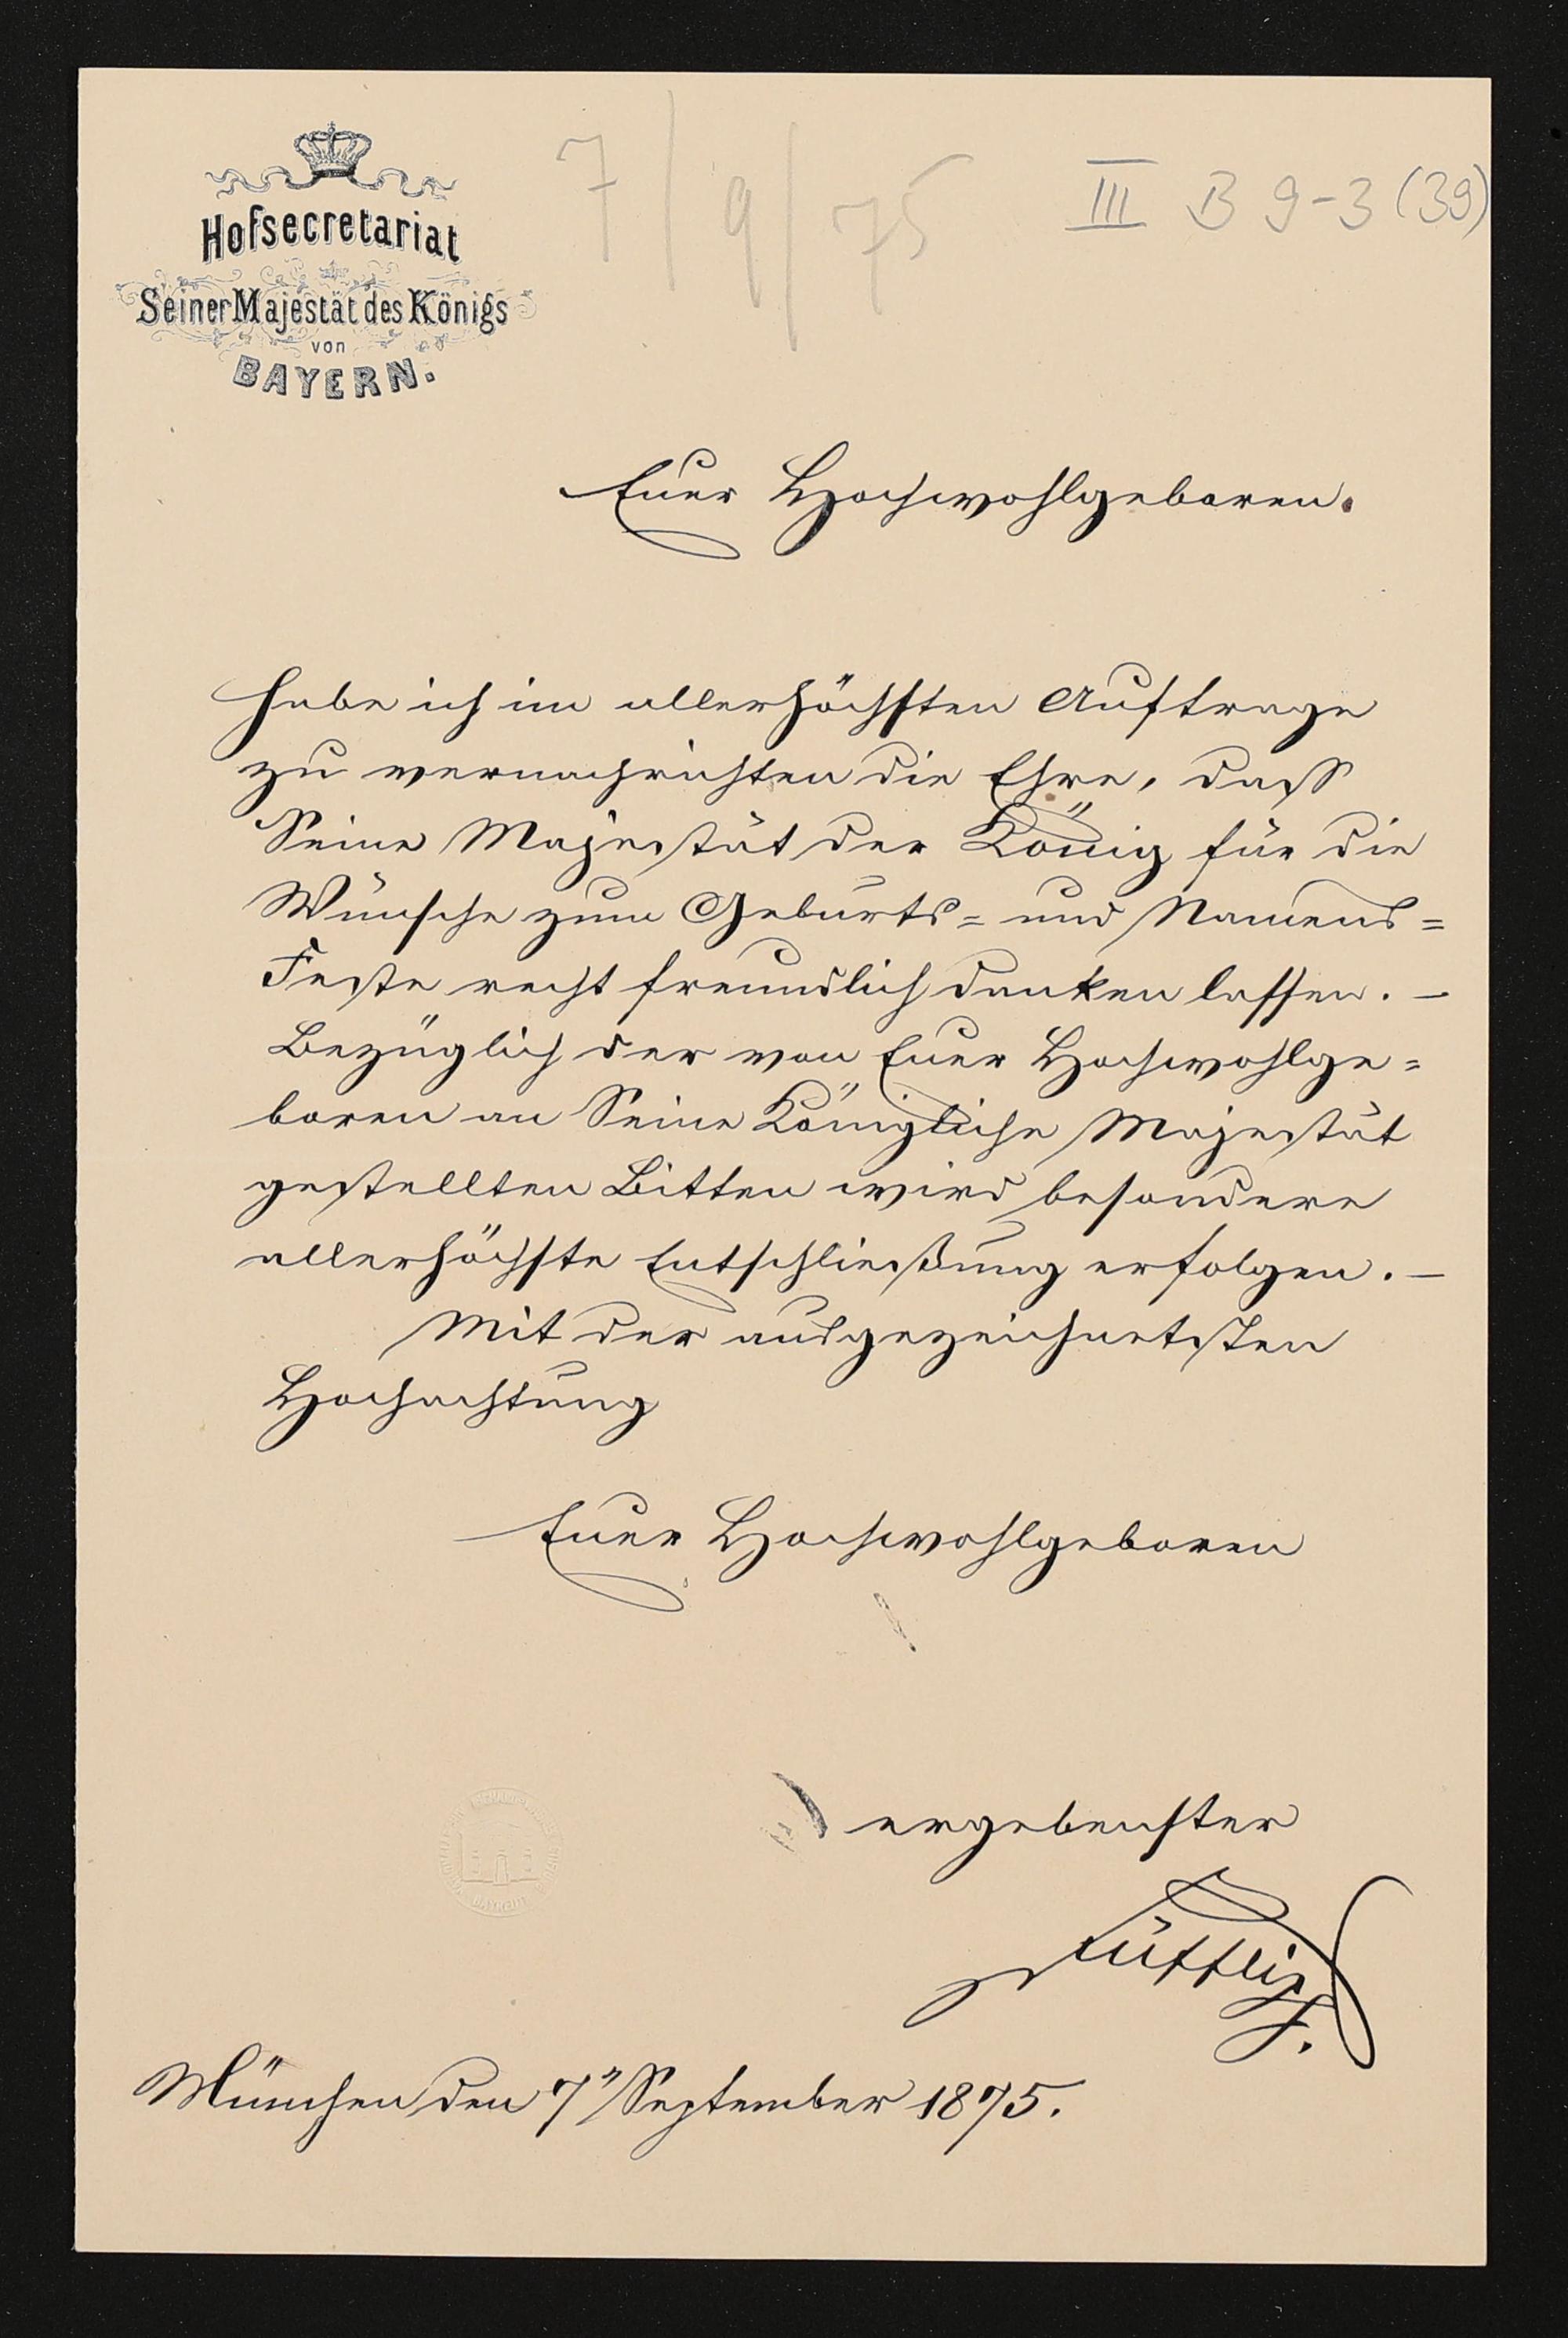 Hofsecretariat
Seiner Majestät des Königs
von
BAYERN.
7/9/75
III B 9-3 (39)
Euer Hochwohlgeboren.
habe ich im allerhöchsten Auftrage
zu vernachrichten die Ehre, dass
Seine Majestät der König für die
Wünsche zum Geburts= und Namens=
Feste recht freundlich danken lassen. —
Bezüglich der von Euer Hochwohlge=
boren an Seine Königliche Majestät
gestellten Bitten wird besondere
allerhöchste Entschließung erfolgen. —
Mit der ausgezeichnetsten
Hochachtung
Euer Hochwohlgeboren
ergebenster
München den 7" September 1875.